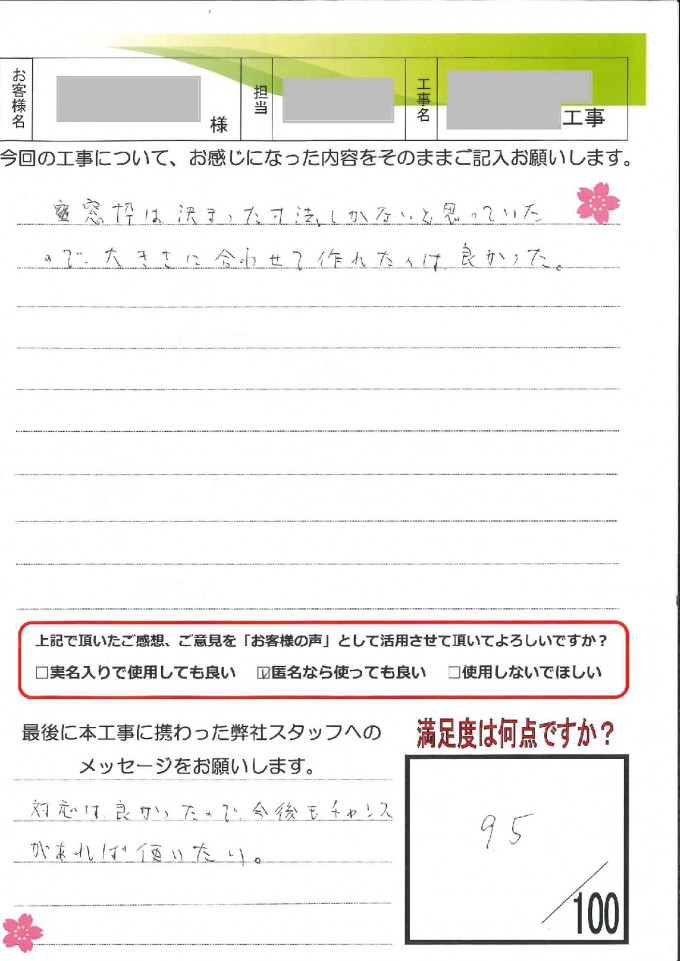 お客様名
様
担当
工事名
工事
今回の工事について、お感じになった内容をそのままご記入お願いします。
窓枠は決まった寸法しかないと思っていた
ので、大きさに合わせて作れたのは良かった。
上記で頂いたご感想、ご意見を「お客様の声」として活用させて頂いてよろしいですか？
□実名入りで使用しても良い ☑匿名なら使っても良い □使用しないでほしい
最後に本工事に携わった弊社スタッフへの
メッセージをお願いします。
対応は良かったので、今後もチャンス
があれば使いたい。
満足度は何点ですか？
95
/100